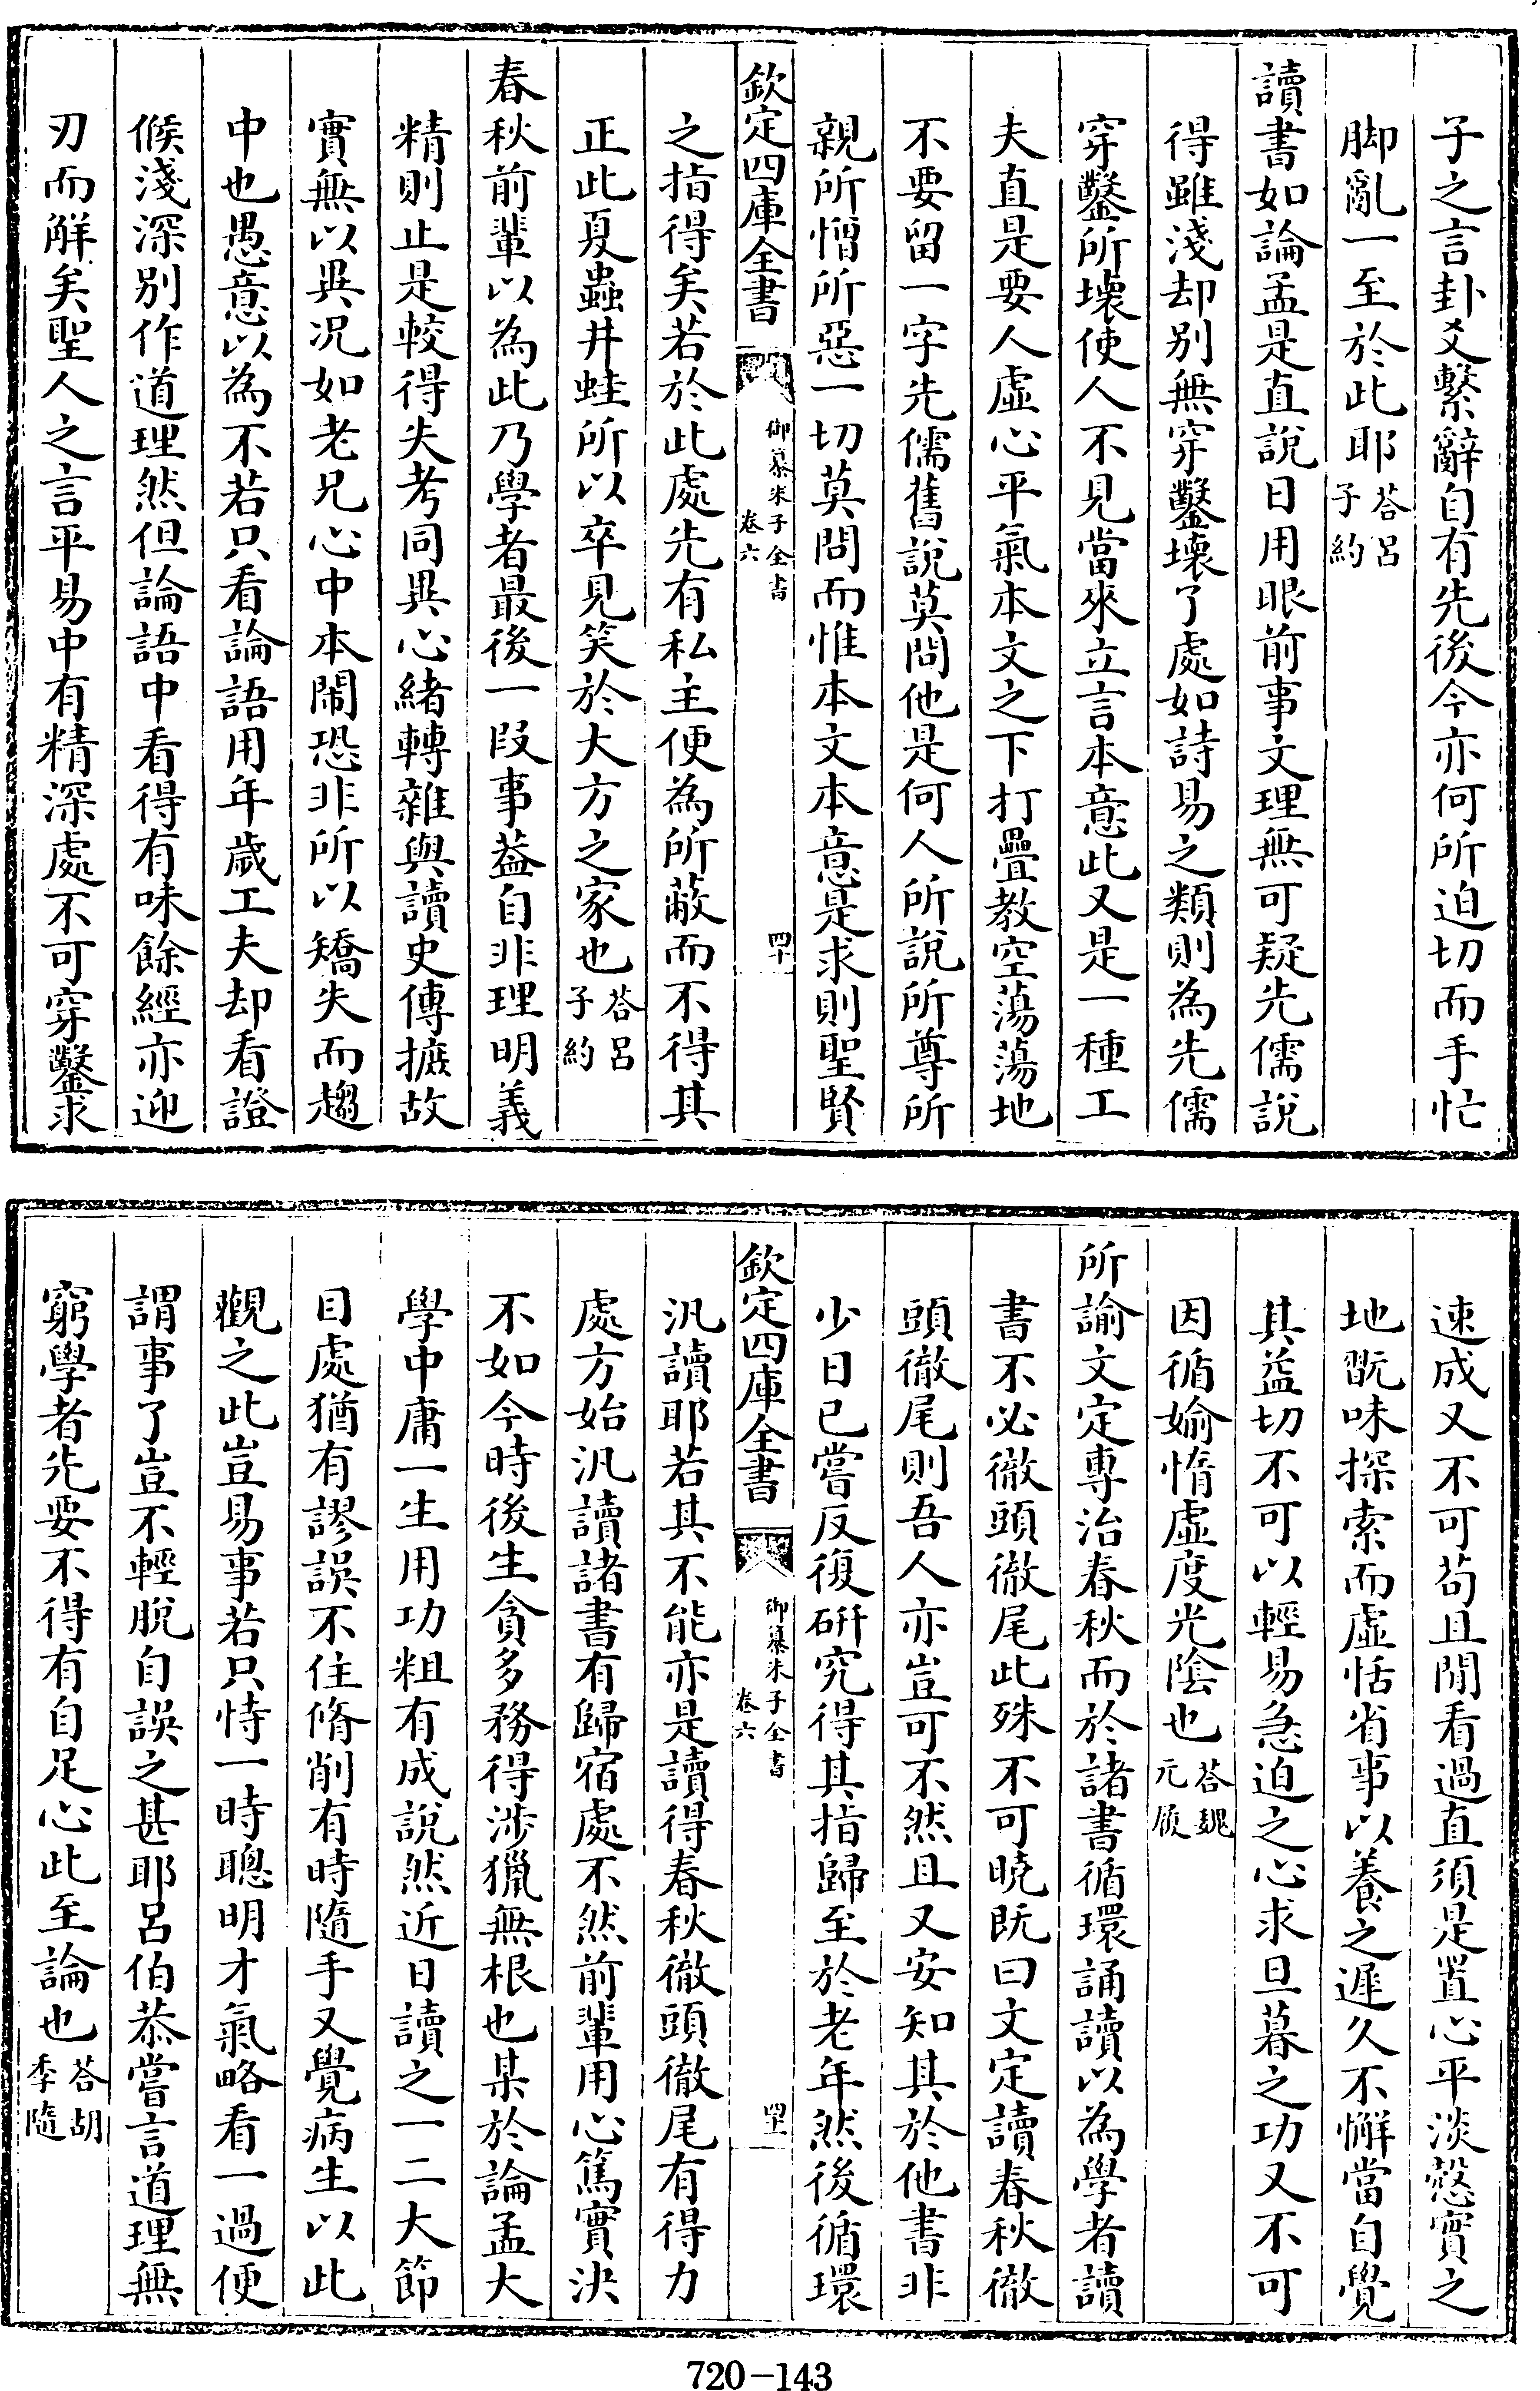 子之言卦爻繫辭自有先後今亦何所迫切而手忙
脚亂一至於此耶答呂子約
讀書如論孟是直說日用眼前事文理無可疑先儒說
得雖淺却别無穿鑿壞了處如詩易之類則為先儒
穿鑿所壞使人不見當來立言本意此又是一種工
夫直是要人虛心平氣本文之下打疊教空蕩蕩地
不要留一字先儒舊說莫問他是何人所說所尊所
親所憎所惡一切莫問而惟本文本意是求則聖賢
欽定四庫全書 御纂朱子全書 卷六 四十
之指得矣若於此處先有私主便為所蔽而不得其
正此夏蟲井蛙所以卒見笑於大方之家也答呂子約
春秋前輩以為此乃學者最後一段事葢自非理明義
精則止是較得失考同異心緒轉雜與讀史傳摭故
實無以異況如老兄心中本閙恐非所以矯失而趨
中也愚意以為不若只看論語用年歲工夫却看證
候淺深别作道理然但論語中看得有味餘經亦迎
刃而解矣聖人之言平易中有精深處不可穿鑿求
速成又不可苟且閒看過直須是置心平淡慤實之
地翫味探索而虛恬省事以養之遲久不懈當自覺
其益切不可以輕易急迫之心求旦暮之功又不可
因循媮惰虛度光陰也答魏元履
所諭文定專治春秋而於諸書循環誦讀以為學者讀
書不必徹頭徹尾此殊不可曉既曰文定讀春秋徹
頭徹尾則吾人亦豈可不然且又安知其於他書非
少日已嘗反復研究得其指歸至於老年然後循環
欽定四庫全書 御纂朱子全書 卷六 四十一
汎讀耶若其不能亦是讀得春秋徹頭徹尾有得力
處方始汎讀諸書有歸宿處不然前輩用心篤實決
不如今時後生貪多務得涉獵無根也某於論孟大
學中庸一生用功粗有成說然近日讀之一二大節
目處猶有謬誤不住脩削有時隨手又覺病生以此
觀之此豈易事若只恃一時聰明才氣略看一過便
謂事了豈不輕脫自誤之甚耶呂伯恭嘗言道理無
窮學者先要不得有自足心此至論也答胡季隨
720-143